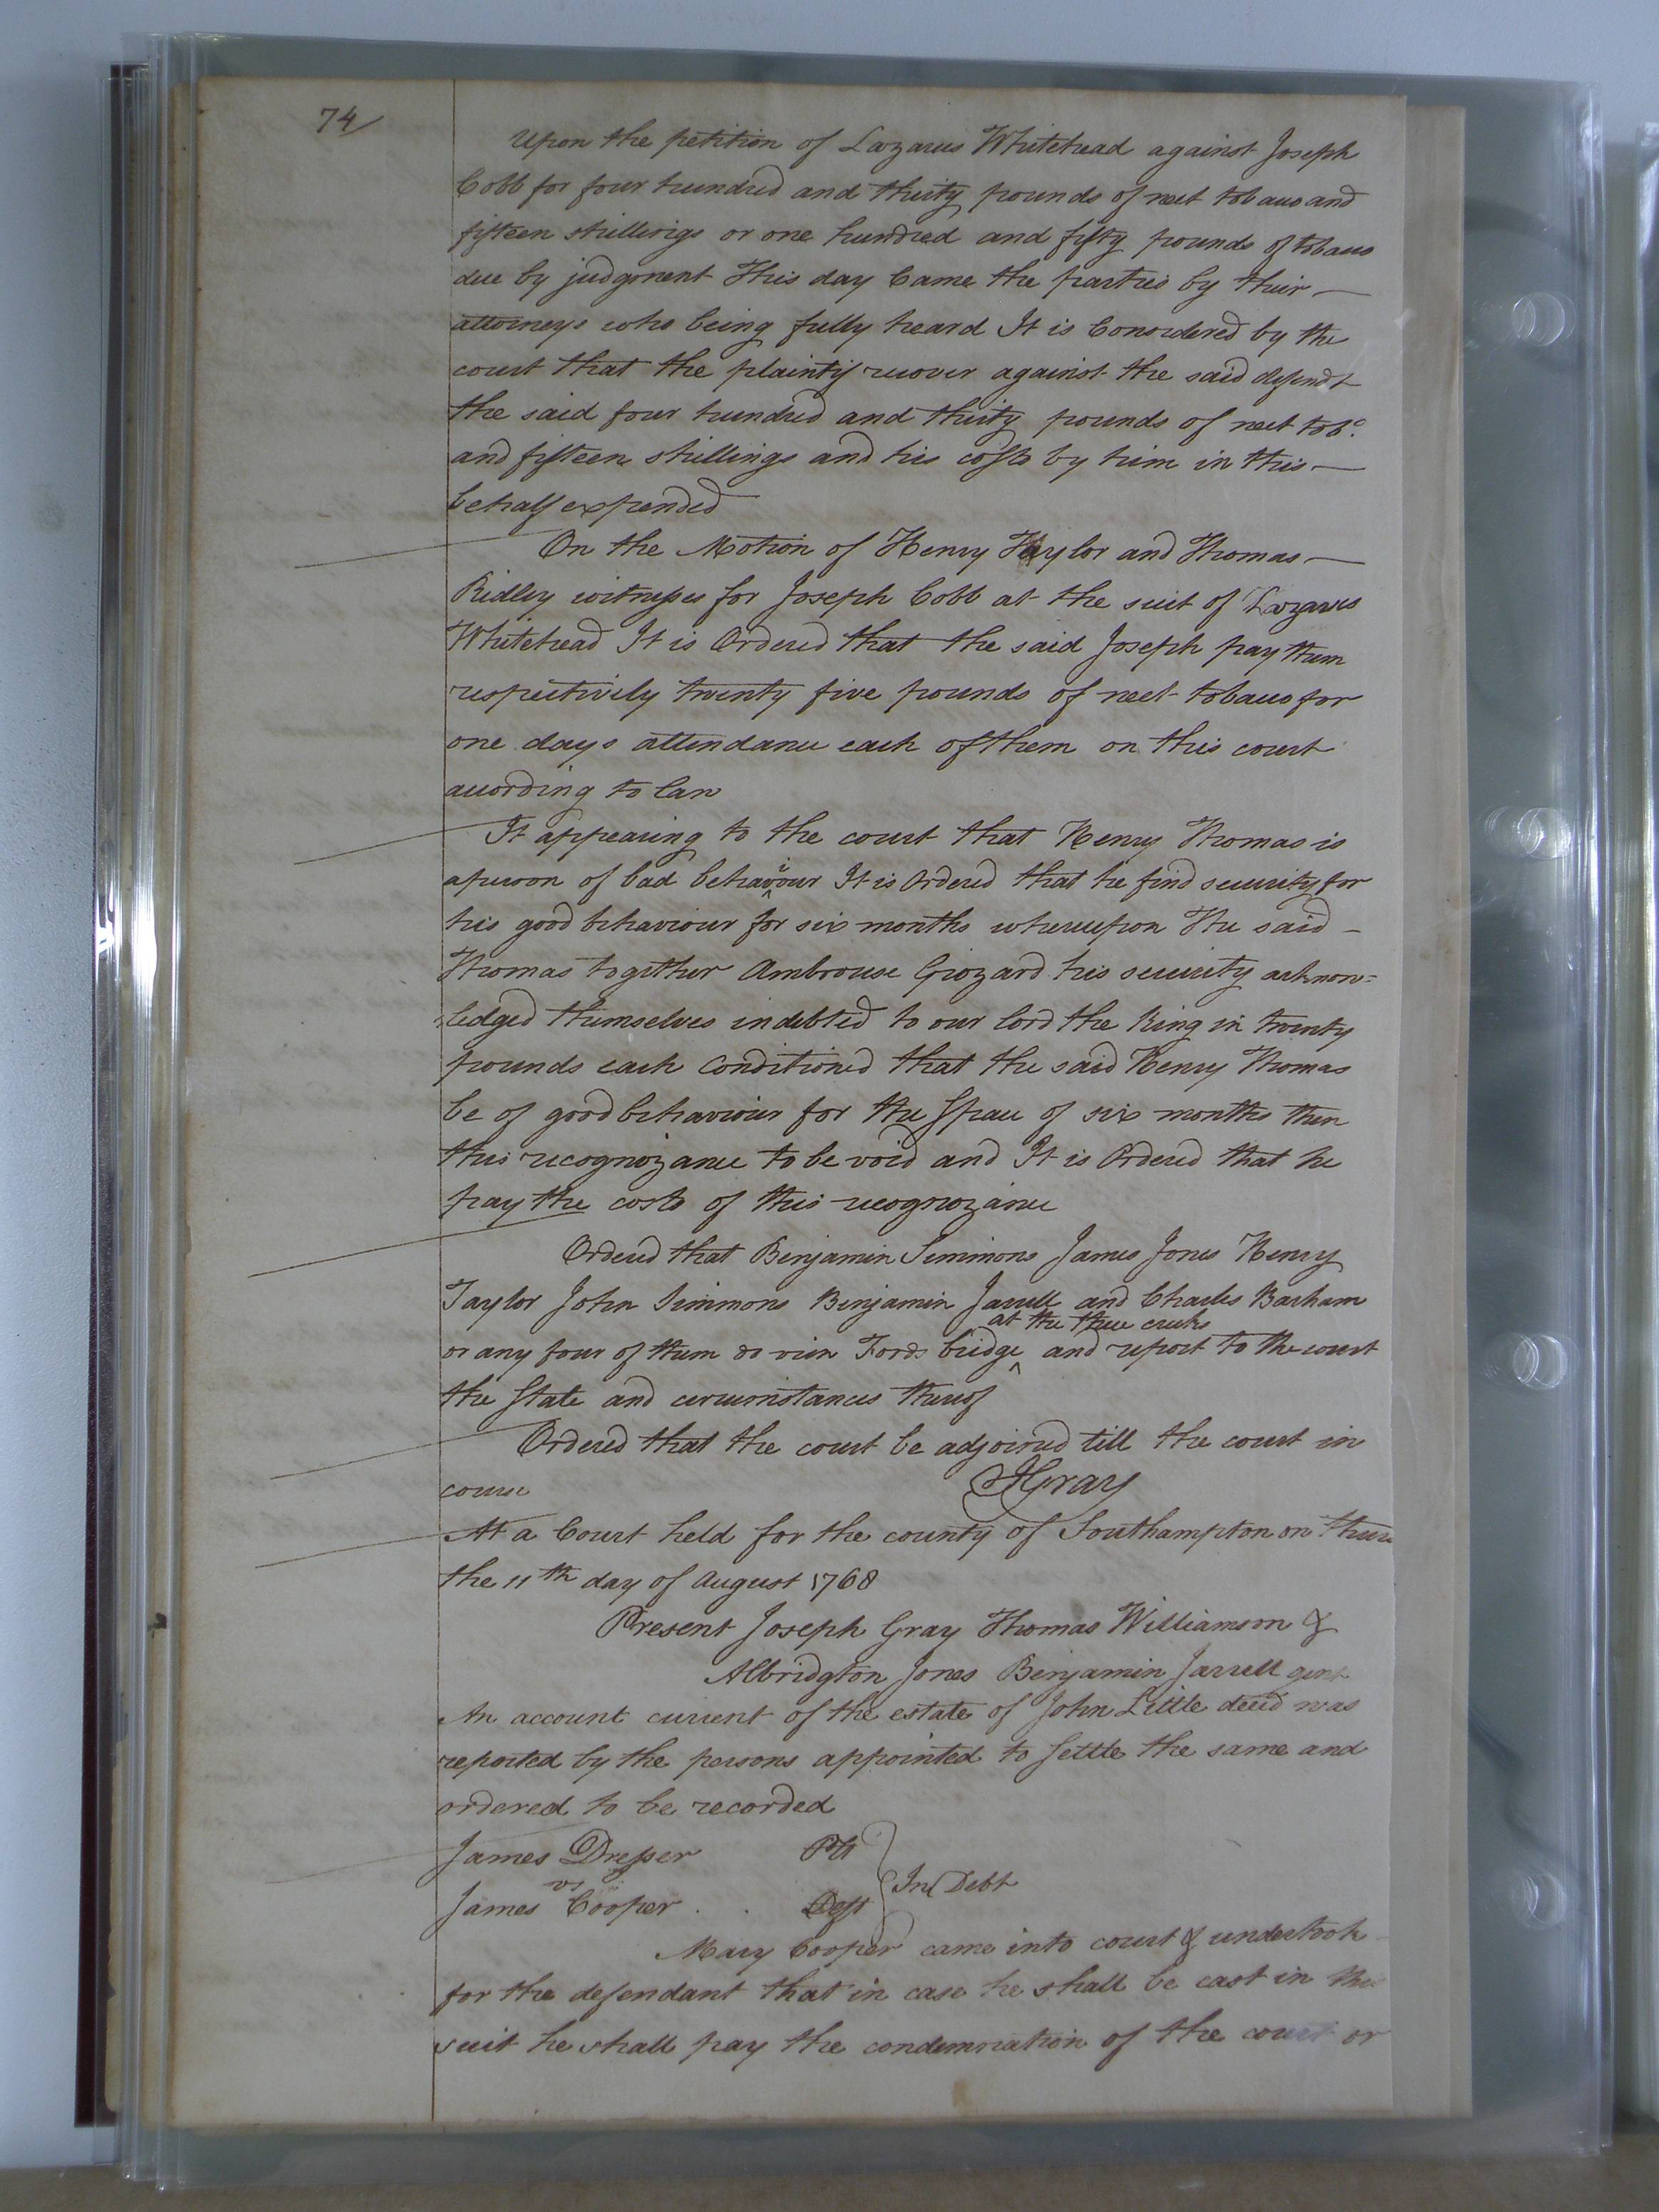 74
Upon the petition of Lazarus Whitehead against Joseph
Cobb for four hundred and thirty pounds of neet tobacco and
fifteen shillings or one hundred and fifty pounds of tobacco
due by judgment This day Came the parties by their —
attorneys who being fully heard It is Considered by the
court that the plaintif recover against the said defendt
the said four hundred and thirty pounds of neet tobo.
and fifteen shillings and his costs by him in this —
behalf expended
On the Motion of Henry Taylor and Thomas —
Ridley witnesses for Joseph Cobb at the suit of Lazarus
Whitehead It is Ordered that the said Joseph pay them
respectively twenty five pounds of neet tobacco for
one days attendance each of them on this court
according to law
It appearing to the court that Henry Thomas is
a person of bad behaviour It is Ordered that he find security for
his good behaviour for six months whereupon The said –
Thomas together Ambrouse Grozard his security acknow=
ledged themselves indebted to our lord the King in twenty
pounds each Conditioned that the said Henry Thomas
be of good behaviour for the space of six months then
this recognozance to be void and It is Ordered that he
pay the costs of this recognozance
Ordered that Benjamin Simmons James Jones Henry
Taylor John Simmons Benjamin Jarrell and Charles Barham
at the three creeks
or any four of them do view Fords bridge ^ and report to the court
the State and circumstances thereof
Ordered that the court be adjoined till the court in
course
JGray
At a Court held for the county of Southampton on
the 11th day of August 1768
Present Joseph Gray Thomas Williamson &
Albridgton Jones Benjamin Jarrell gent
An account current of the estate of John Little deced was
reported by the persons appointed to settle the same and
ordered to be recorded
James Dresser Plt
vs
In Debt
James Cooper . . Deft
Mary Cooper came into court & undertook
for the defendant that in case he shall be cast in the
suit he shall pay the condemnation of the court or